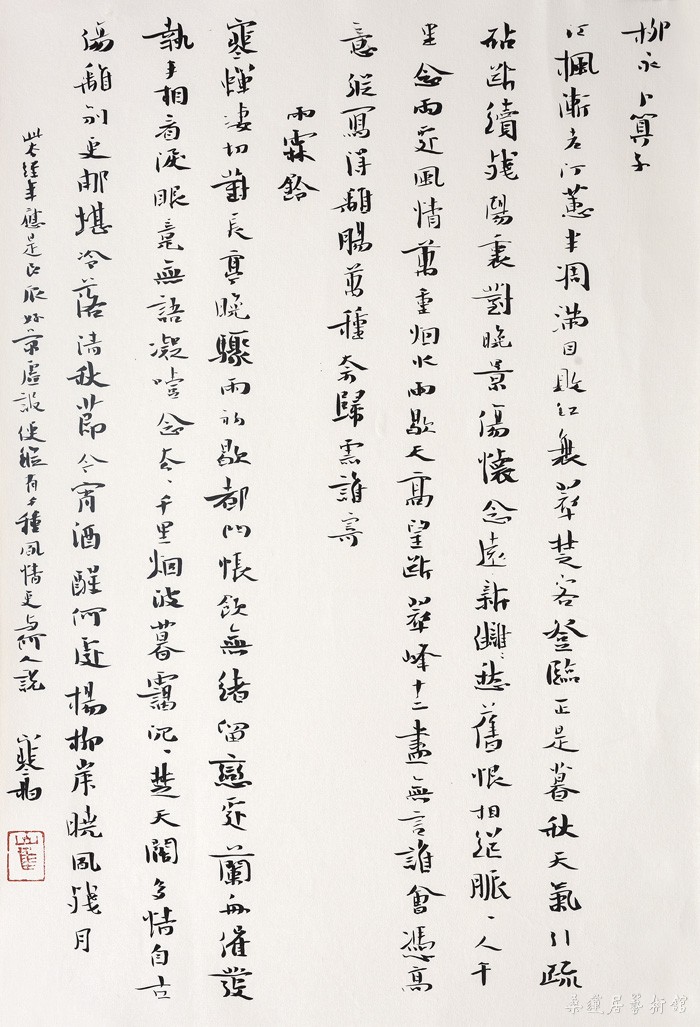 柳永卜算子
江楓漸老汀蕙半凋滿目敗紅衰翠楚客登臨正是暮秋天氣引疏
砧斷續殘陽裏對晚景傷懷念遠新愁舊恨相繼脈、人千
里念兩處風情萬重烟水雨歇天高望斷翠峰十二盡無言誰會憑高
意縱寫得離腸萬種奈歸雲誰寄
雨霖鈴
寒蟬淒切對長亭晚驟雨初歇都門帳飲無緒留戀處蘭舟催發
執手相看淚眼竟無語凝噎念去、千里烟波暮靄沉、楚天闊多情自古
傷離別更那堪冷落清秋節今宵酒醒何處楊柳岸曉風殘月
此去經年應是良辰好景虛設便縱有千種風情更與何人說
桑蓮居藝術館